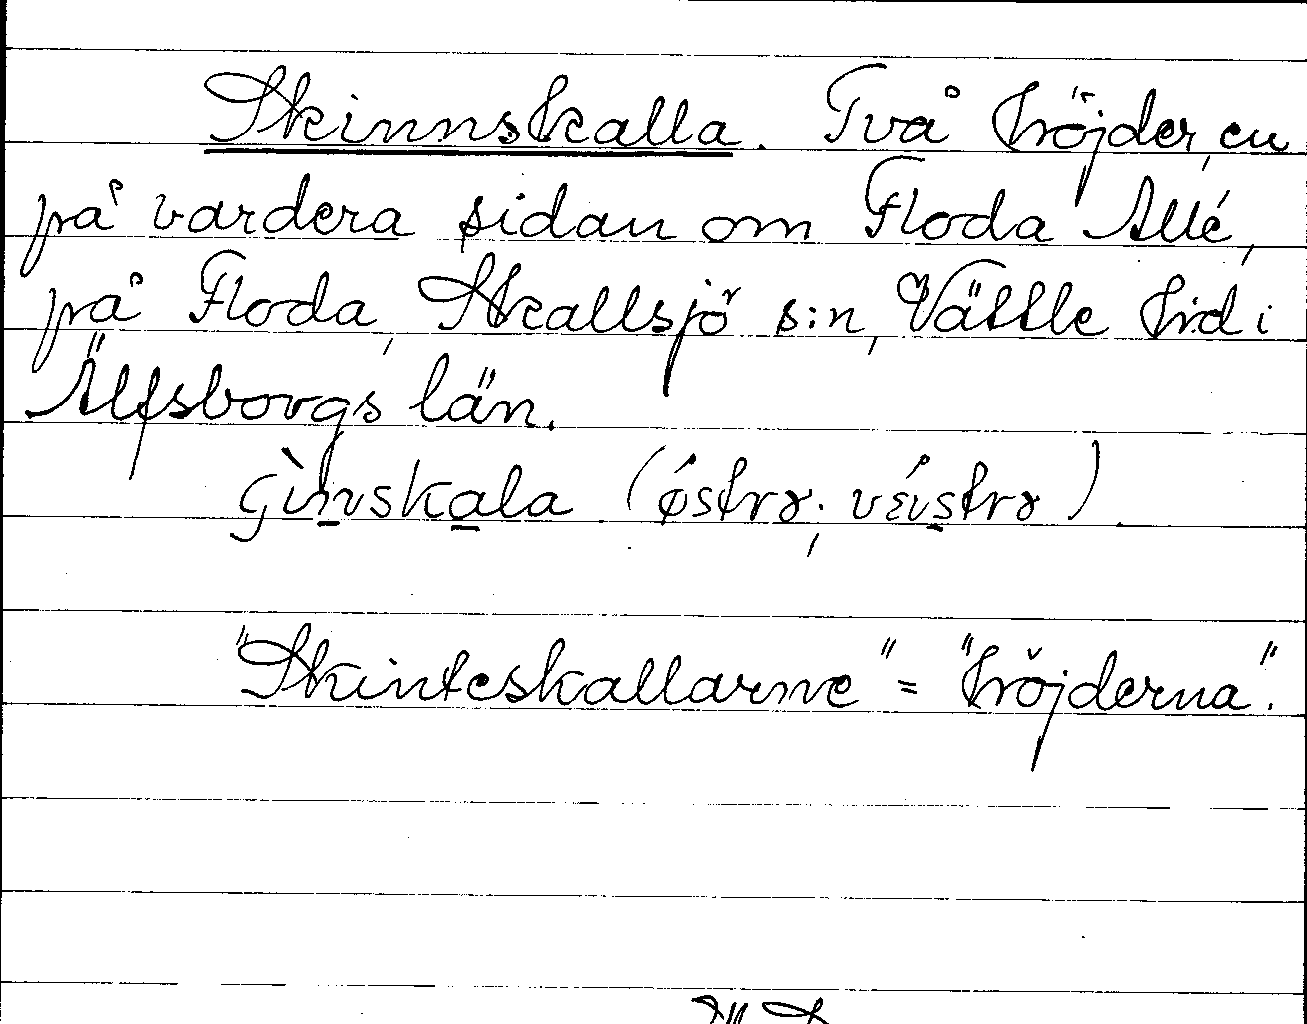 Skinnskalla. Två höjder, en
på vardera sidan om Floda Allé,
på Floda, Skallsjö s:n, Vättle hd i
Älfsborgs län.
"Skinteskallarne" = "höjderna".